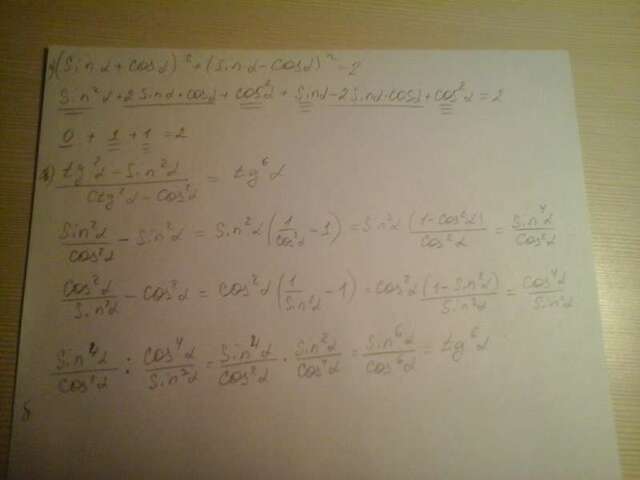 (Sin α + cos α)² + (Sin α - cos α)² = 2
Sin²α + 2 Sin α · cos α + cos²α + Sin α - 2 Sin α · cos α + cos²α = 2
0 + 1 + 1 = 2
(tg²α - Sin²α) / (ctg²α - cos²α) = tg⁶α
Sin²α / cos²α - Sin²α = Sin²α (1 / cos²α - 1) = Sin²α (1 - cos²α) / cos²α = Sin⁴α / cos²α
cos²α / Sin²α - cos²α = cos²α (1 / Sin²α - 1) = cos²α (1 - Sin²α) / Sin²α = cos⁴α / Sin²α
Sin⁴α / cos²α : cos⁴α / Sin²α = Sin⁴α / cos²α · Sin²α / cos⁴α = Sin⁶α / cos⁶α = tg⁶α